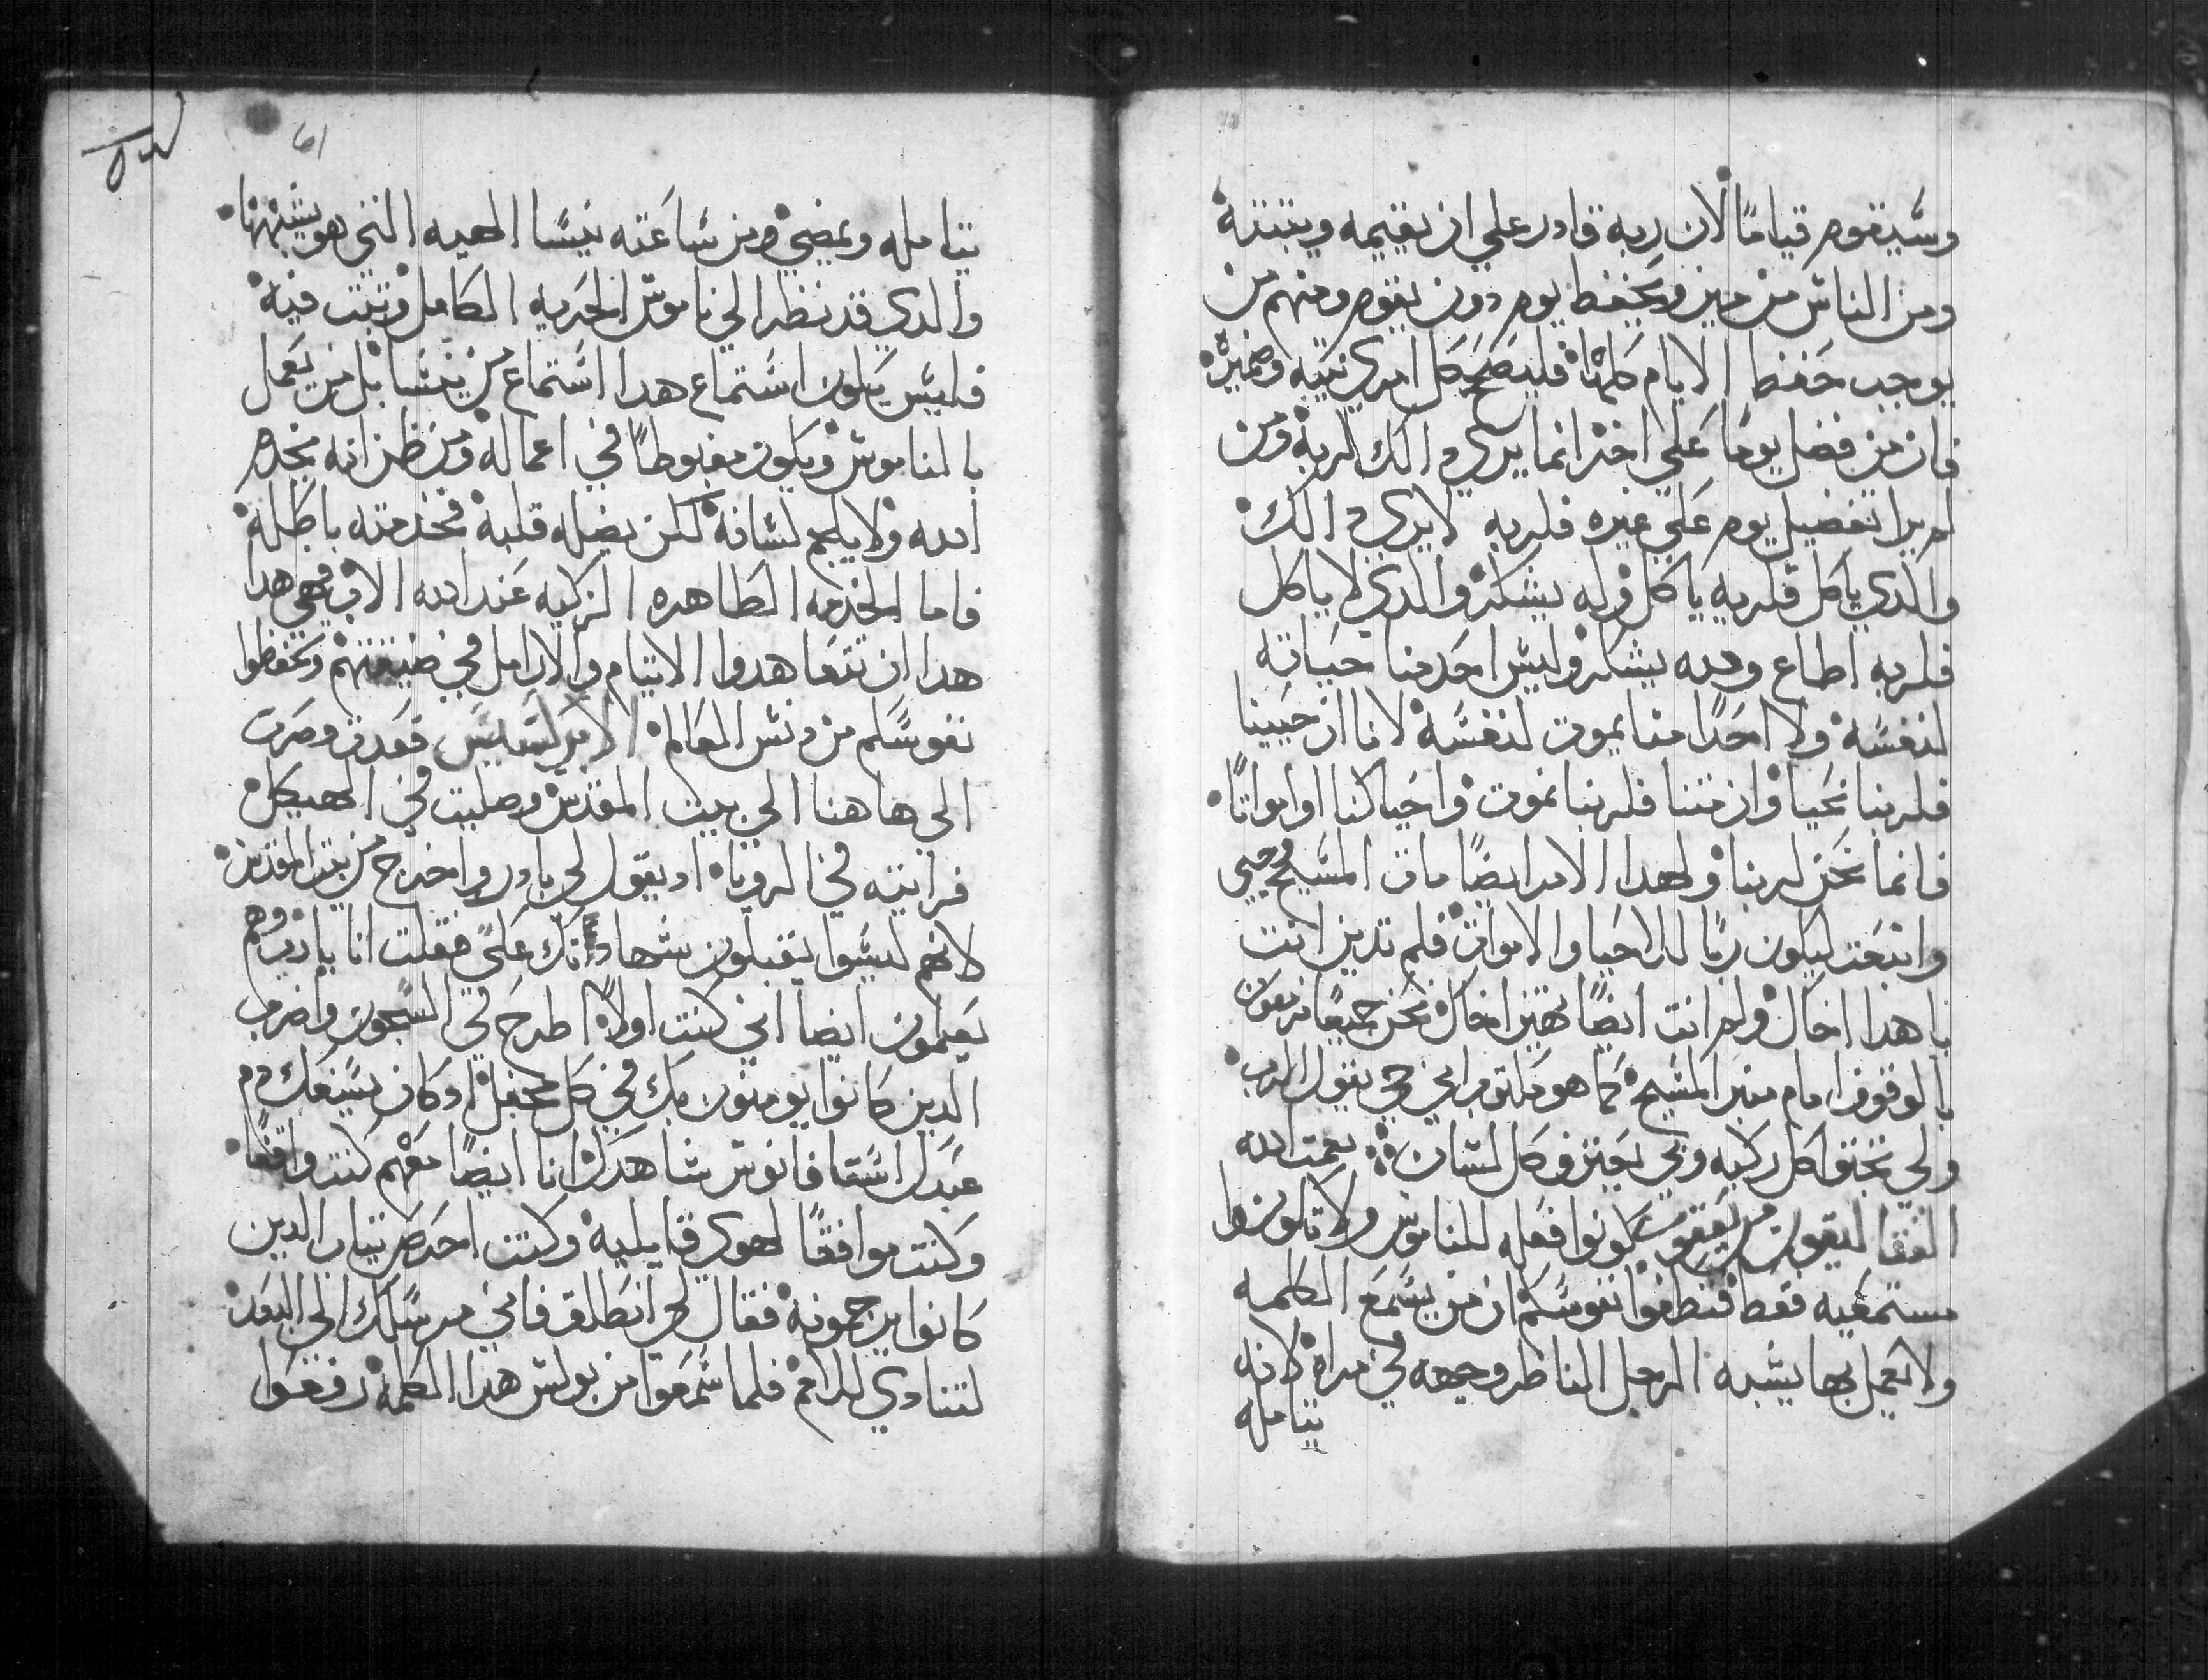 وسيقوم قياما لان ربه قادر علي ان يقيمه ويتبته
ومن الناس من ميز ويحفظ يوم دون يوم ومنهم من
يوجب حفظ الايام كلها فليصح كل امري نيته وضميره
فان من فضل يوما علي اخر انما يري دالك لربه ومن
لم يرا تفضيل يوم علي غيره فلربه لايري دالك
والدي ياكل فلربه ياكل وله يشكر والدي لا ياكل
فلربه اطاع وله يشكر وليس احد منا حياته
لنفسه ولا احدا منا يموت لنفسه لانا ان حيينا
فلربنا نحيا وان متنا فلربنا نموت واحيا كنا او امواتا
فانما نحن لربنا ولهدا الامر ايضا مات المسيح وحيي
وانبعت ليكون ربا للاحيا والاموات فلم تدين انت
يا هدا اخاك ولم انت ايضا تهين اخاك نحن جميعا مزمعون
بالوقوف امام منبر المسيح كما هو مكتوب اني حي يقول الرب
ولي تجتوا كل ركبه وبي يعترف كل لسان نعمت الله
القتا ليقون من يعقوب كونوا فعله للناموس ولا تكونوا
مستمعيه فقط فتطغوا نفوسكم ان من يسمع الكلمه
ولا يعمل بها يشبه الرجل الناظر وجهه في مراه لانه
يتامله
61
يتامله ويمضي ومن ساعته ينسا الهيه التي هو يشبهها
والدي قد نظر الي ناموس الحريه الكامل وتبت فيه
فليس يكون استماع هدا استماع من ينسا بل من يعمل
بالناموس ويكون مغبوطا في اعماله ومن ظن انه يخدم
الله ولا يلجم لسانه لكن يضله قلبه فخدمته باطله
فاما الخدمه الطاهره الزكيه عند الله الاب فهي هدا
هدا ان تتعاهدوا الايتام والارامل في ضيقتهم وتحفظوا
نفوسكم من دنس العالم الابركسيس فعدت وصرت
الي هاهنا الي بيت المقدس وصليت في الهيكل
فرايته في الرويا اد يقول لي بادر واخرج من بيت المقدس
لانهم ليسوا يقبلون شهادتك علي فقلت انا يارب وهم
يعلمون ايضا اني كنت اولا اطرح في السجون واضرب
الدين كانوا يومنون بك في كل محفل اد كان يسفك دم
عبدك استافانوس شاهدك انا ايضا معهم كنت واقفا
وكنت موافقا لهوي قاتليه وكنت احدم تياب الدين
كانوا يرجمونه فقال لي انطلق فاني مرسلك الي البعد
لتنادي للامم فلما سمعوا من بولس هدا الكلمه رفعوا